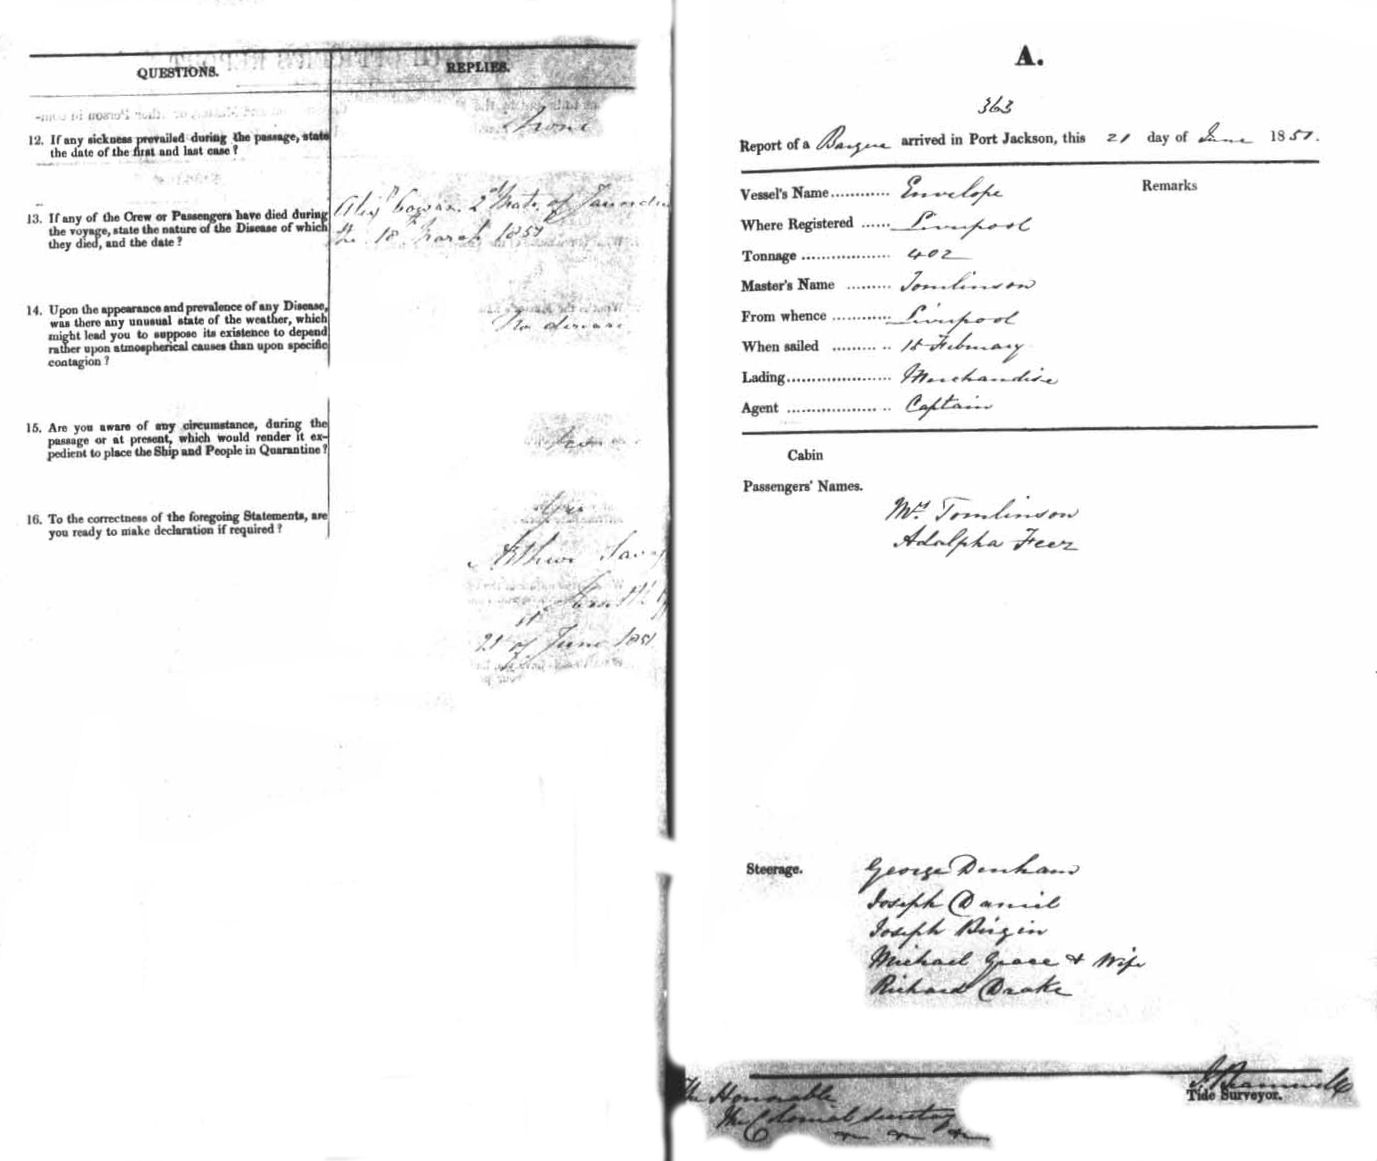 QUESTIONS.
REPLIES.
12. If any sickness prevailed during the passage, state
the date of the first and last case?
None
13. If any of the Crew or Passengers have died during
the voyage, state the nature of the Disease of which
they died, and the date?
Cowan 2d Mate of
the 18 March 1851
14. Upon the appearance and prevalence of any Disease,
was there any unusual state of the weather, which
might lead you to suppose its existence to depend
rather upon atmospherical causes than upon specific
contagion?
No disease
15. Are you aware of any circumstance, during the
passage or at present, which would render it ex-
pedient to place the Ship and People in Quarantine?
16. To the correctness of the foregoing Statements, are
you ready to make declaration if required?
Yes
21st of June 1851
A.
363
Report of a Barque arrived in Port Jackson, this 21 day of June 1851.
Vessel's Name............ Envelope
Remarks
Where Registered ...... Liverpool
Tonnage .................. 402
Master's Name ......... Tomlinson
From whence ............ Liverpool
When sailed ......... .. 18 February
Lading..................... Merchandise
Agent .................. .. Captain
Cabin
Passengers' Names.
Mrs. Tomlinson
Adalpha Feez
Steerage. George Denham
Joseph Daniel
Joseph Birgin
Michael Grace & Wife
Richard Drake
Tide Surveyor.
The Honorable
The Colonial Secretary